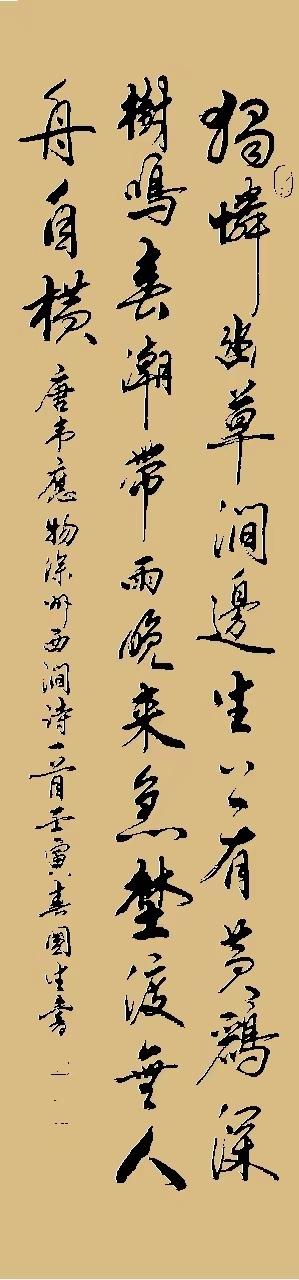 獨憐幽草澗邊生上有黃鸝深
樹鳴春潮帶雨晚来急埜渡無人
舟自橫 唐韋應物滁州西澗詩一首壬寅春國生書